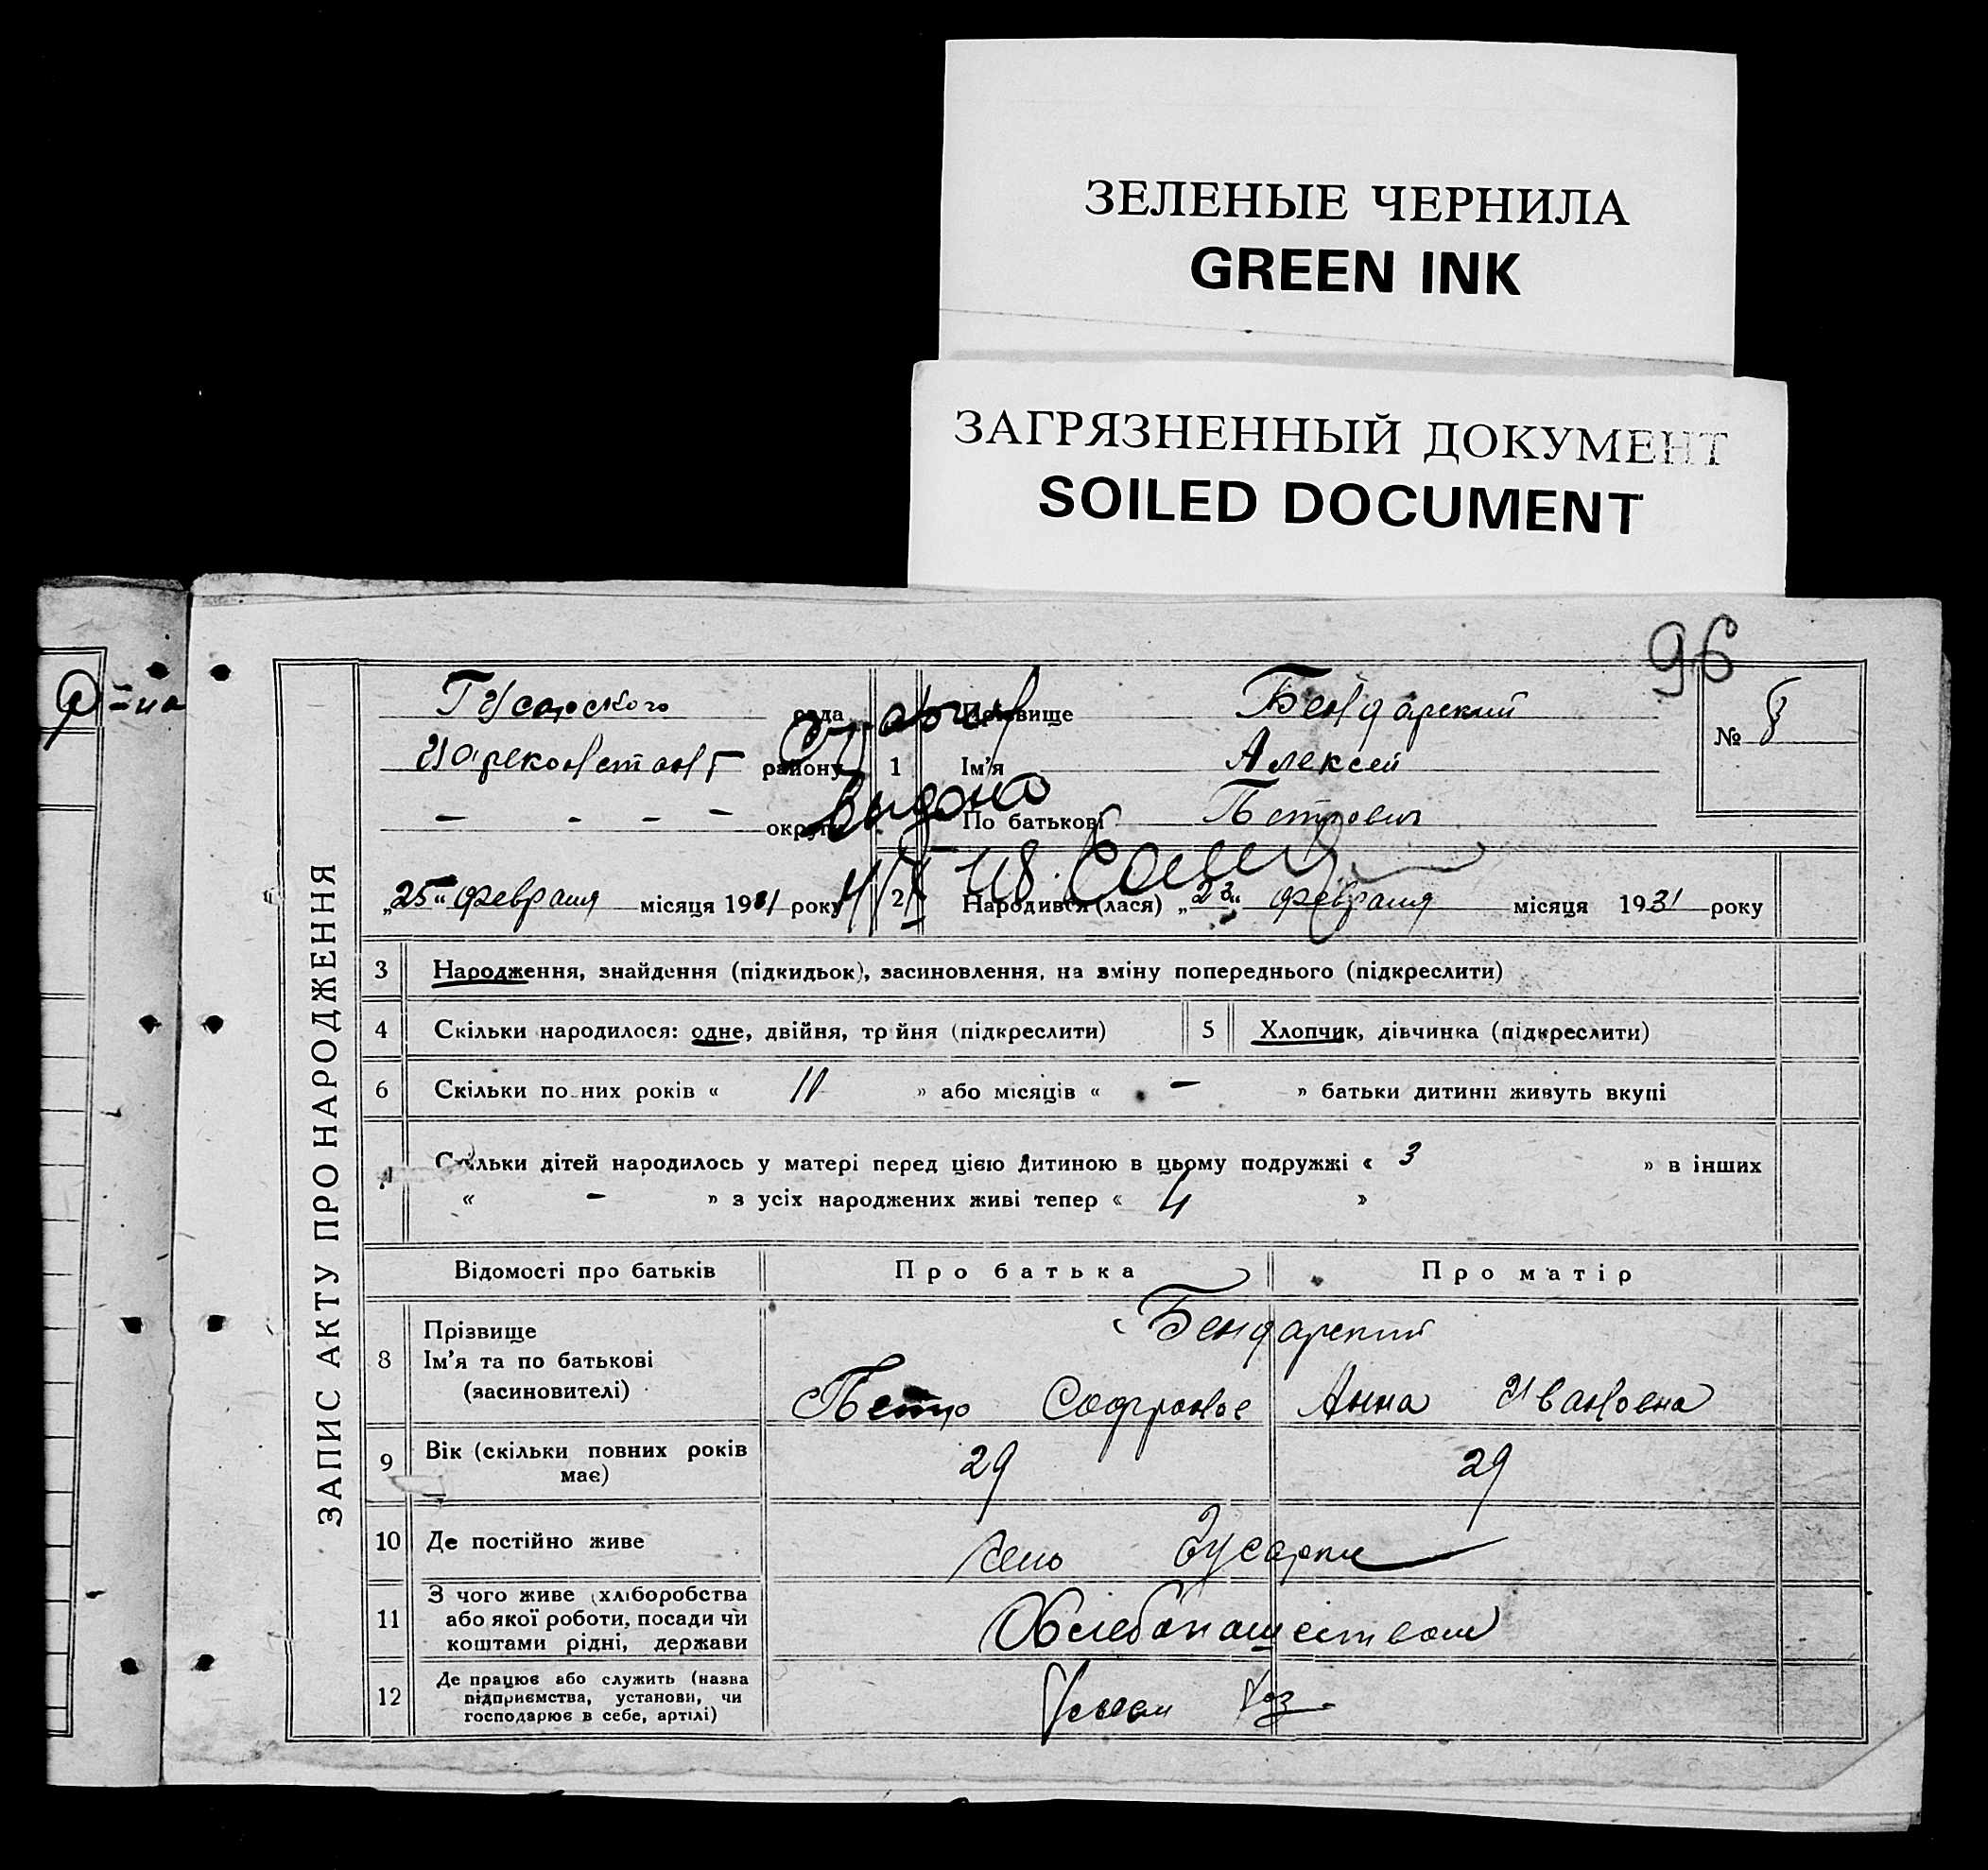 ЗЕЛЕНЫЕ ЧЕРНИЛА
GREEN INK
ЗАГРЯЗНЕННЫЙ ДОКУМЕНТ
SOILED DOCUMENT
96
ЗАПИС АКТУ ПРО НАРОДЖЕННЯ
Гусарского рада
Цареконстант району
— - - — округи
„25" февраля місяця 1931 року
выдано
1 Прізвище Бендарский
Ім'я Алексей
По батькові Петрович
№ 8
2 Народився (лася) „23" февраля місяця 1931 року
3 Народження, знайдення (підкидьок), засиновлення, на зміну попереднього (підкреслити)
4 Скільки народилося: одне, двійня, тр йня (підкреслити)
5 Хлопчик, дівчинка (підкреслити)
6 Скільки повних років « 11 » або місяців « — » батьки дитини живуть вкупі
Скільки дітей народилось у матері перед цією дитиною в цьому подружжі « 3 » в інших
« — » з усіх народжених живі тепер « 4 »
Відомості про батьків Про батька Про матір
8 Прізвище
Ім'я та по батькові
(засиновителі)
Бендарский
Петро Софронов Анна Ивановна
9 Вік (скільки повних років
має)
29 29
10 Де постійно живе село Гусарки
11 З чого живе (хліборобства
або якої роботи, посади чи
коштами рідні, держави
Хлебопашеством
12 Де працює або служить (назва
підприємства, установи, чи
господарює в себе, артілі)